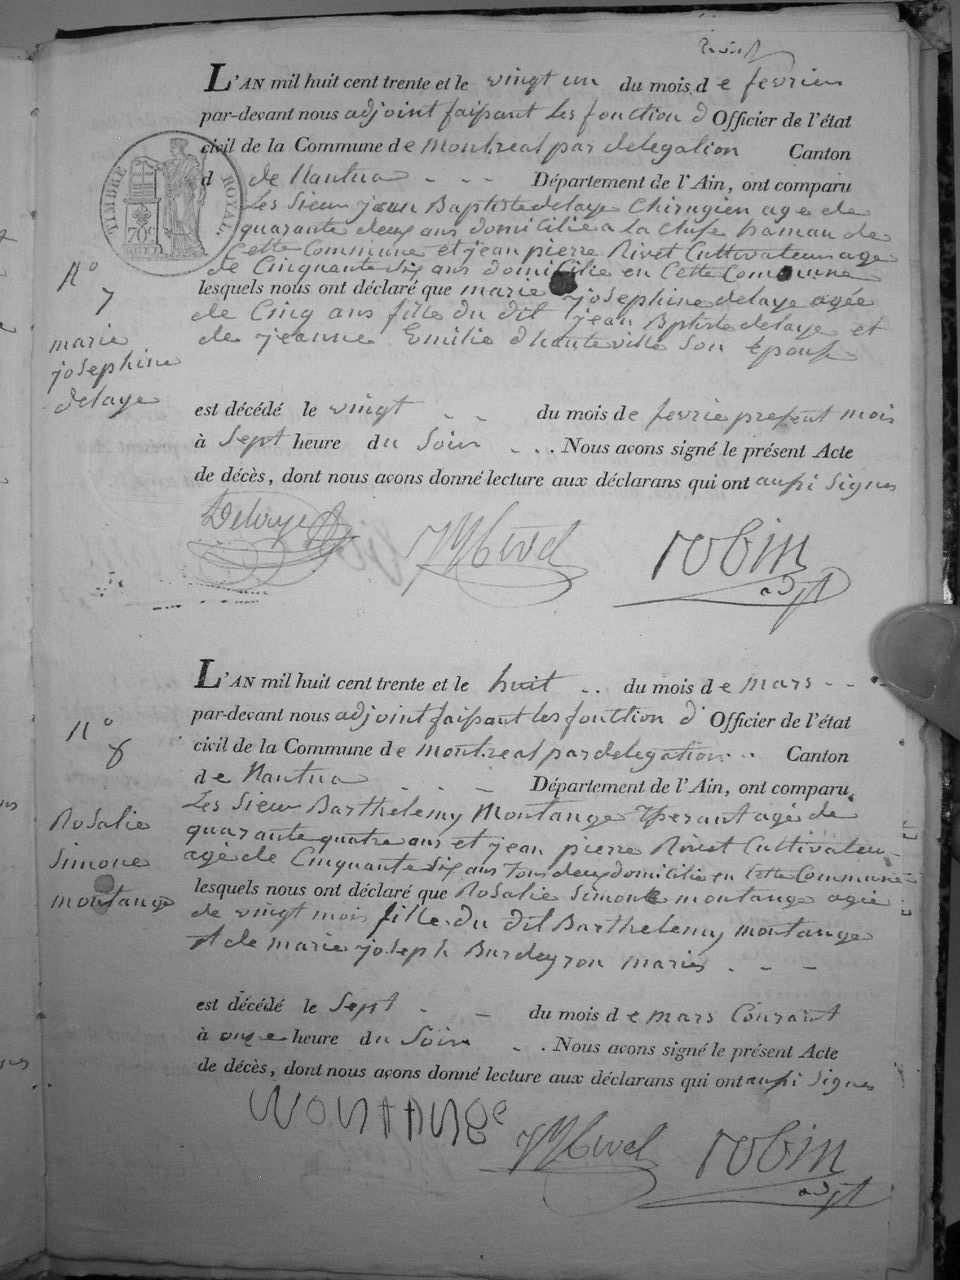 L'AN mil huit cent trente et le vingt un du mois de fevrier
par-devant nous adjoint faisant les fonction d Officier de l'état
civil de la Commune de Montreal par delegation Canton
d de Nantua - - - Département de l'Ain, ont comparu
TIMBRE ROYAL.
Les Sieur jean Baptiste delaye Chirugien age de
quarante deux ans domicilié a La Cluse hamau de
Cette Commune et jean pierre Rivet Cultivateur age
de Cinquante six ans domicilié en Cette Commune
N° 7
lesquels nous ont déclaré que marie josephine delaye agée
de Cinq ans fille du dit jean Bptiste delaye et
de jeanne Emilie dhauteville son epouse
marie
josephine
delaye
est décédé le vingt - - du mois de fevrie present mois
à Sept heure du Soir - . . Nous avons signé le présent Acte
de décès, dont nous avons donné lecture aux déclarans qui ont aussi signes
Delaye Rivet robin
adjt
L'AN mil huit cent trente et le huit . . du mois de mars - -
par-devant nous adjoint faisant les fonction d' Officier de l'état
N° 8
civil de la Commune de Montreal par delegation . . Canton
de Nantua - - - Département de l'Ain, ont comparu
Les Sieur Barthelemy Montange agé de
quarante quatre ans et jean pierre Rivet Cultivateur
agé de Cinquante six ans tous deux domicilié en Cette Commune
Rosalie
Simone
montange
lesquels nous ont déclaré que Rosalie Simone montange agée
de vingt mois fille du dit Barthelemy montange
et de marie joseph Burdeyron mariés - - -
est décédé le Sept - - du mois de mars Courant
à onze heure du Soir - . . Nous avons signé le présent Acte
de décès, dont nous avons donné lecture aux déclarans qui ont aussi signes
Montange Rivet robin
adjt